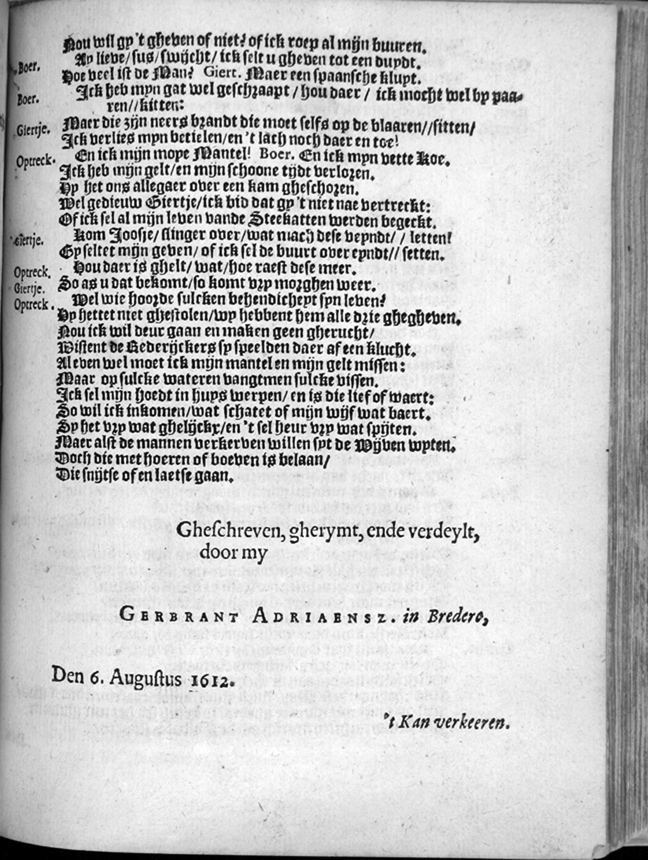 Nou wil gy 't gheven of niet? of ick roep al mijn buuren.
Boer. Ay lieve/sus/swijcht/ick selt u gheven tot een duydt.
Hoe veel ist de Man? Giert. Maer een spaansche kluyt.
Boer. Ick heb myn gat wel geschraapt/hou daer/ick mocht wel by paa-
ren//kitten:
Giertje. Maer die zijn neers brandt die moet selfs op de blaaren//sitten/
Ick verlies myn betielen/en 't lach noch daer en toe!
Optreck. En ick mijn moye Mantel! Boer. En ick myn vette Koe.
Ick heb mijn gelt/en mijn schoone tijdt verlozen.
Hy het ons allegaer over een kam gheschoren.
Wel gedieuw Giertje/ick bid dat gy 't niet nae vertreckt:
Of ick sel al mijn leven vande Steekatten werden begeckt.
Giertje. Kom Joosje/slinger over/wat mach dese veyndt//letten?
Gy seltet mijn geven/of ick sel de buurt over eyndt//setten.
Optreck. Hou daer is ghelt/wat/hoe raest dese meer.
Giertje. So as u dat bekomt/so komt vry morghen weer.
Optreck. Wel wie hoorde sulcken behendicheyt syn leven?
Hy hettet niet ghestolen/wy hebbent hem alle drie ghegheven.
Nou ick wil deur gaan en maken geen gherucht/
Wistent de Rederijckers sy speelden daer af een klucht.
Al even wel moet ick mijn mantel en mijn gelt missen:
Maar op sulcke wateren vangtmen sulcke vissen.
Ick sel mijn hoedt in huys werpen/en is die lief of waert:
So wil ick inkomen/wat schatet of mijn wijf wat baert.
Sy het vry wat ghelijckx/en 't sel heur vry wat spijten.
Maer alst de mannen verkerven willen syt de Wijven wyten.
Doch die met hoeren of boeven is belaan/
Die snijtse of en laetse gaan.
Gheschreven, gherymt, ende verdeylt,
door my
GERBRANT ADRIAENSZ. in Bredero,
Den 6. Augustus 1612.
't Kan verkeeren.